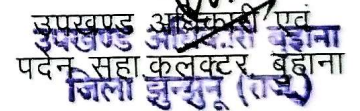 उपखण्ड अधिकारी एवं
उपखण्ड अधिकारी बुहाना
पदेन सहा.कलक्टर बुहाना
जिला झुन्झुनू (राज.)